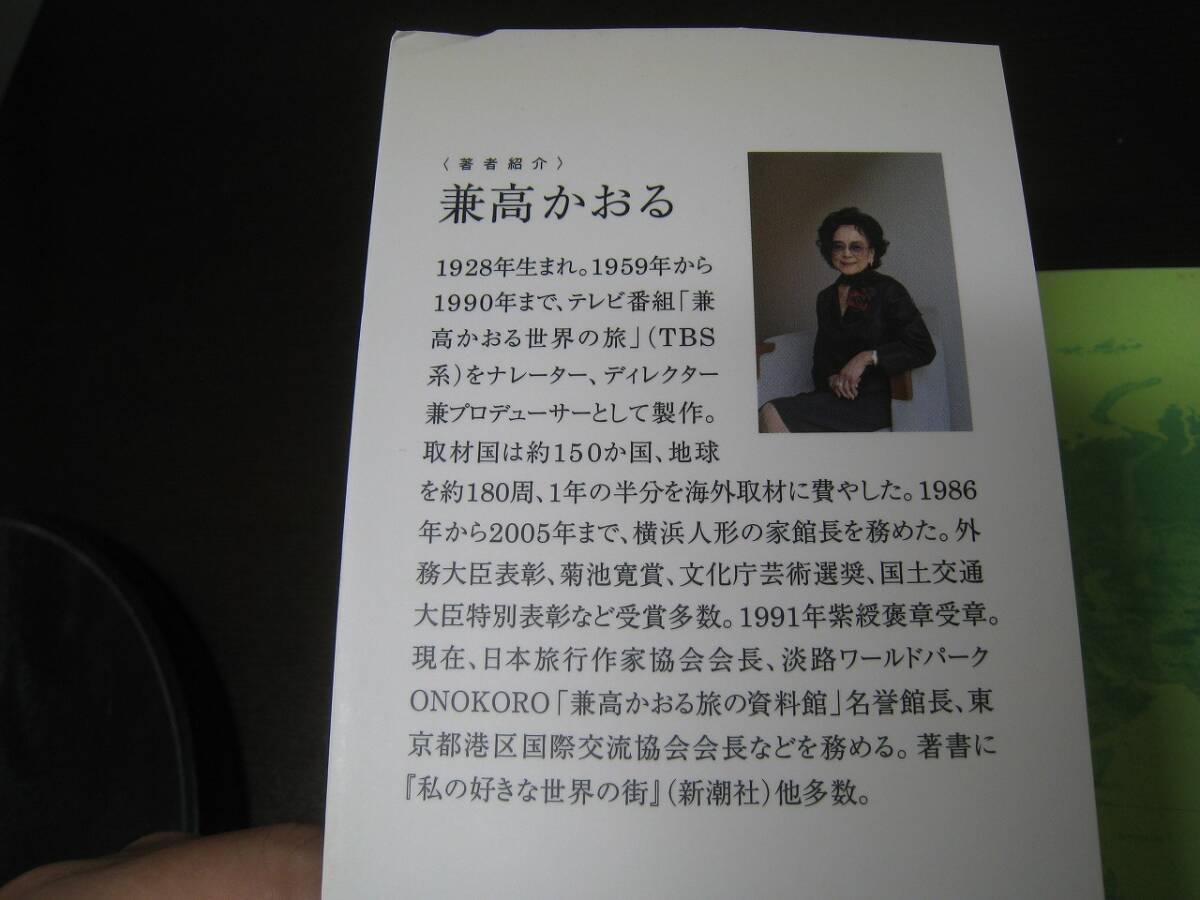 〈著者紹介〉
兼高かおる
1928年生まれ。1959年から
1990年まで、テレビ番組「兼
高かおる世界の旅」(TBS
系)をナレーター、ディレクター
兼プロデューサーとして製作。
取材国は約150か国、地球
を約180周、1年の半分を海外取材に費やした。1986
年から2005年まで、横浜人形の家館長を務めた。外
務大臣表彰、菊池寛賞、文化庁芸術選奨、国土交通
大臣特別表彰など受賞多数。1991年紫綬褒章受章。
現在、日本旅行作家協会会長、淡路ワールドパーク
ONOKORO「兼高かおる旅の資料館」名誉館長、東
京都港区国際交流協会会長などを務める。著書に
『私の好きな世界の街』(新潮社)他多数。